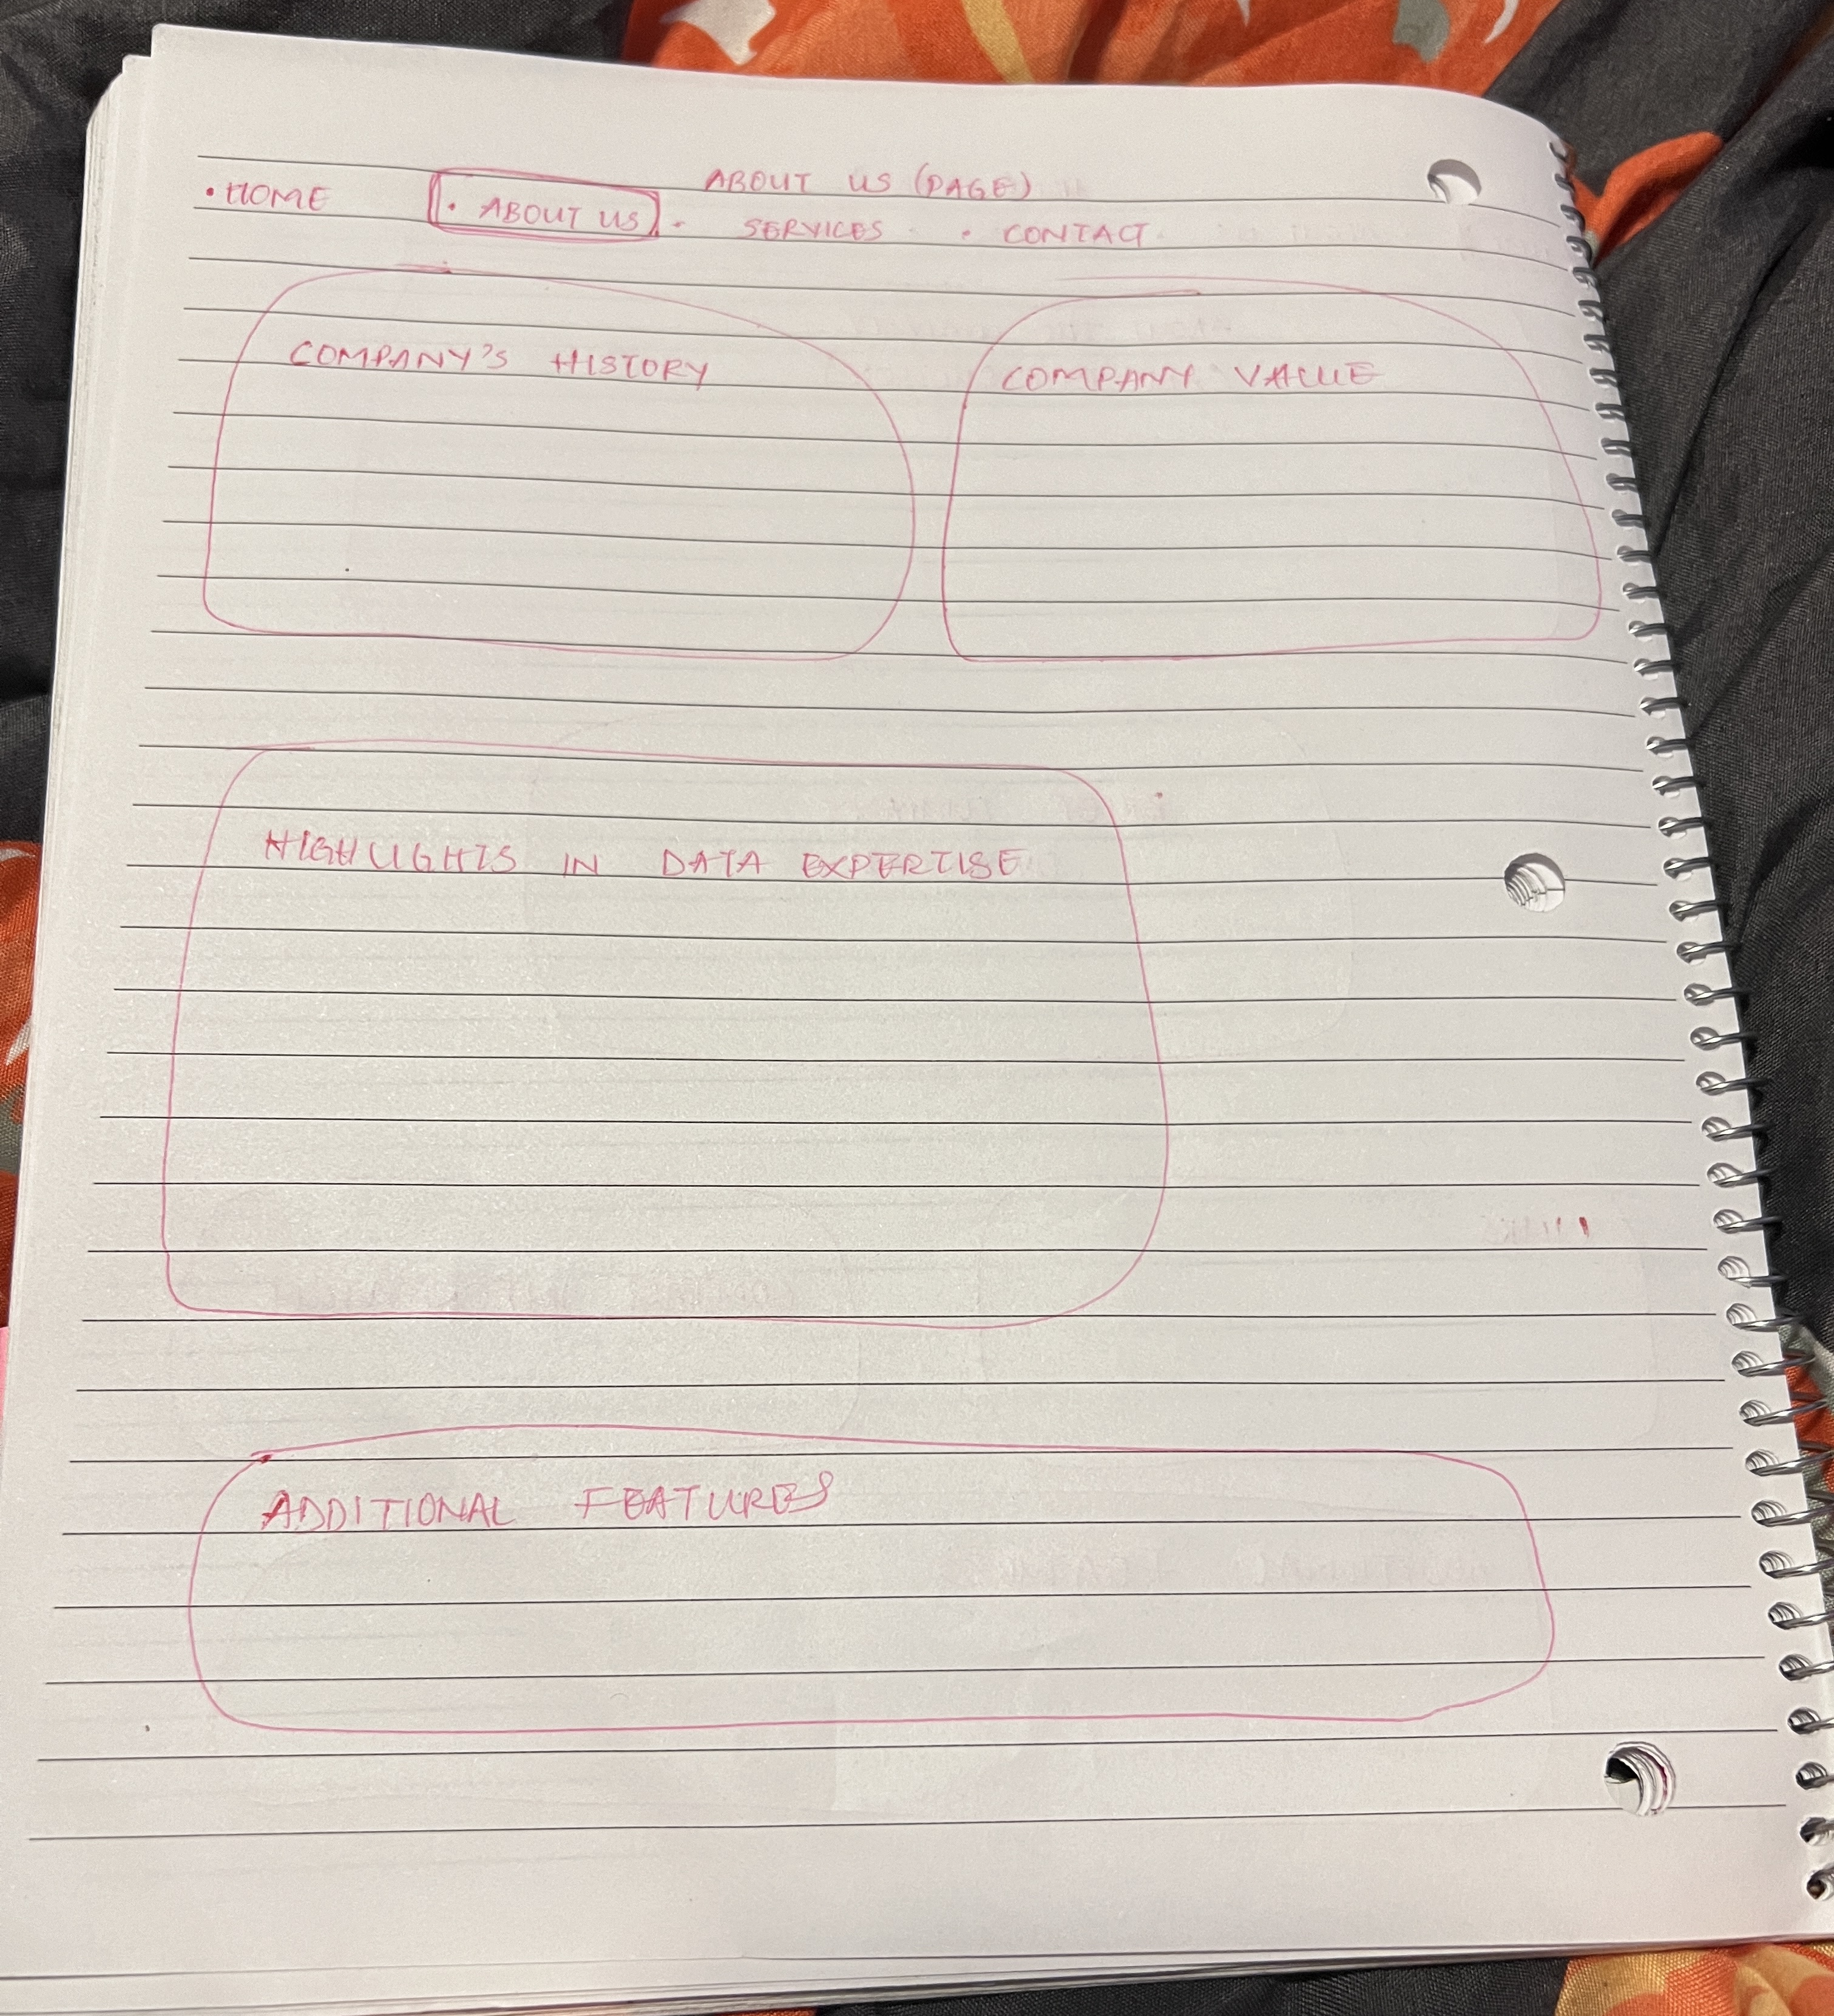 ABOUT US (PAGE)
• HOME • ABOUT US • SERVICES • CONTACT
COMPANY'S HISTORY
COMPANY VALUE
HIGHLIGHTS IN DATA EXPERTISE
ADDITIONAL FEATURES